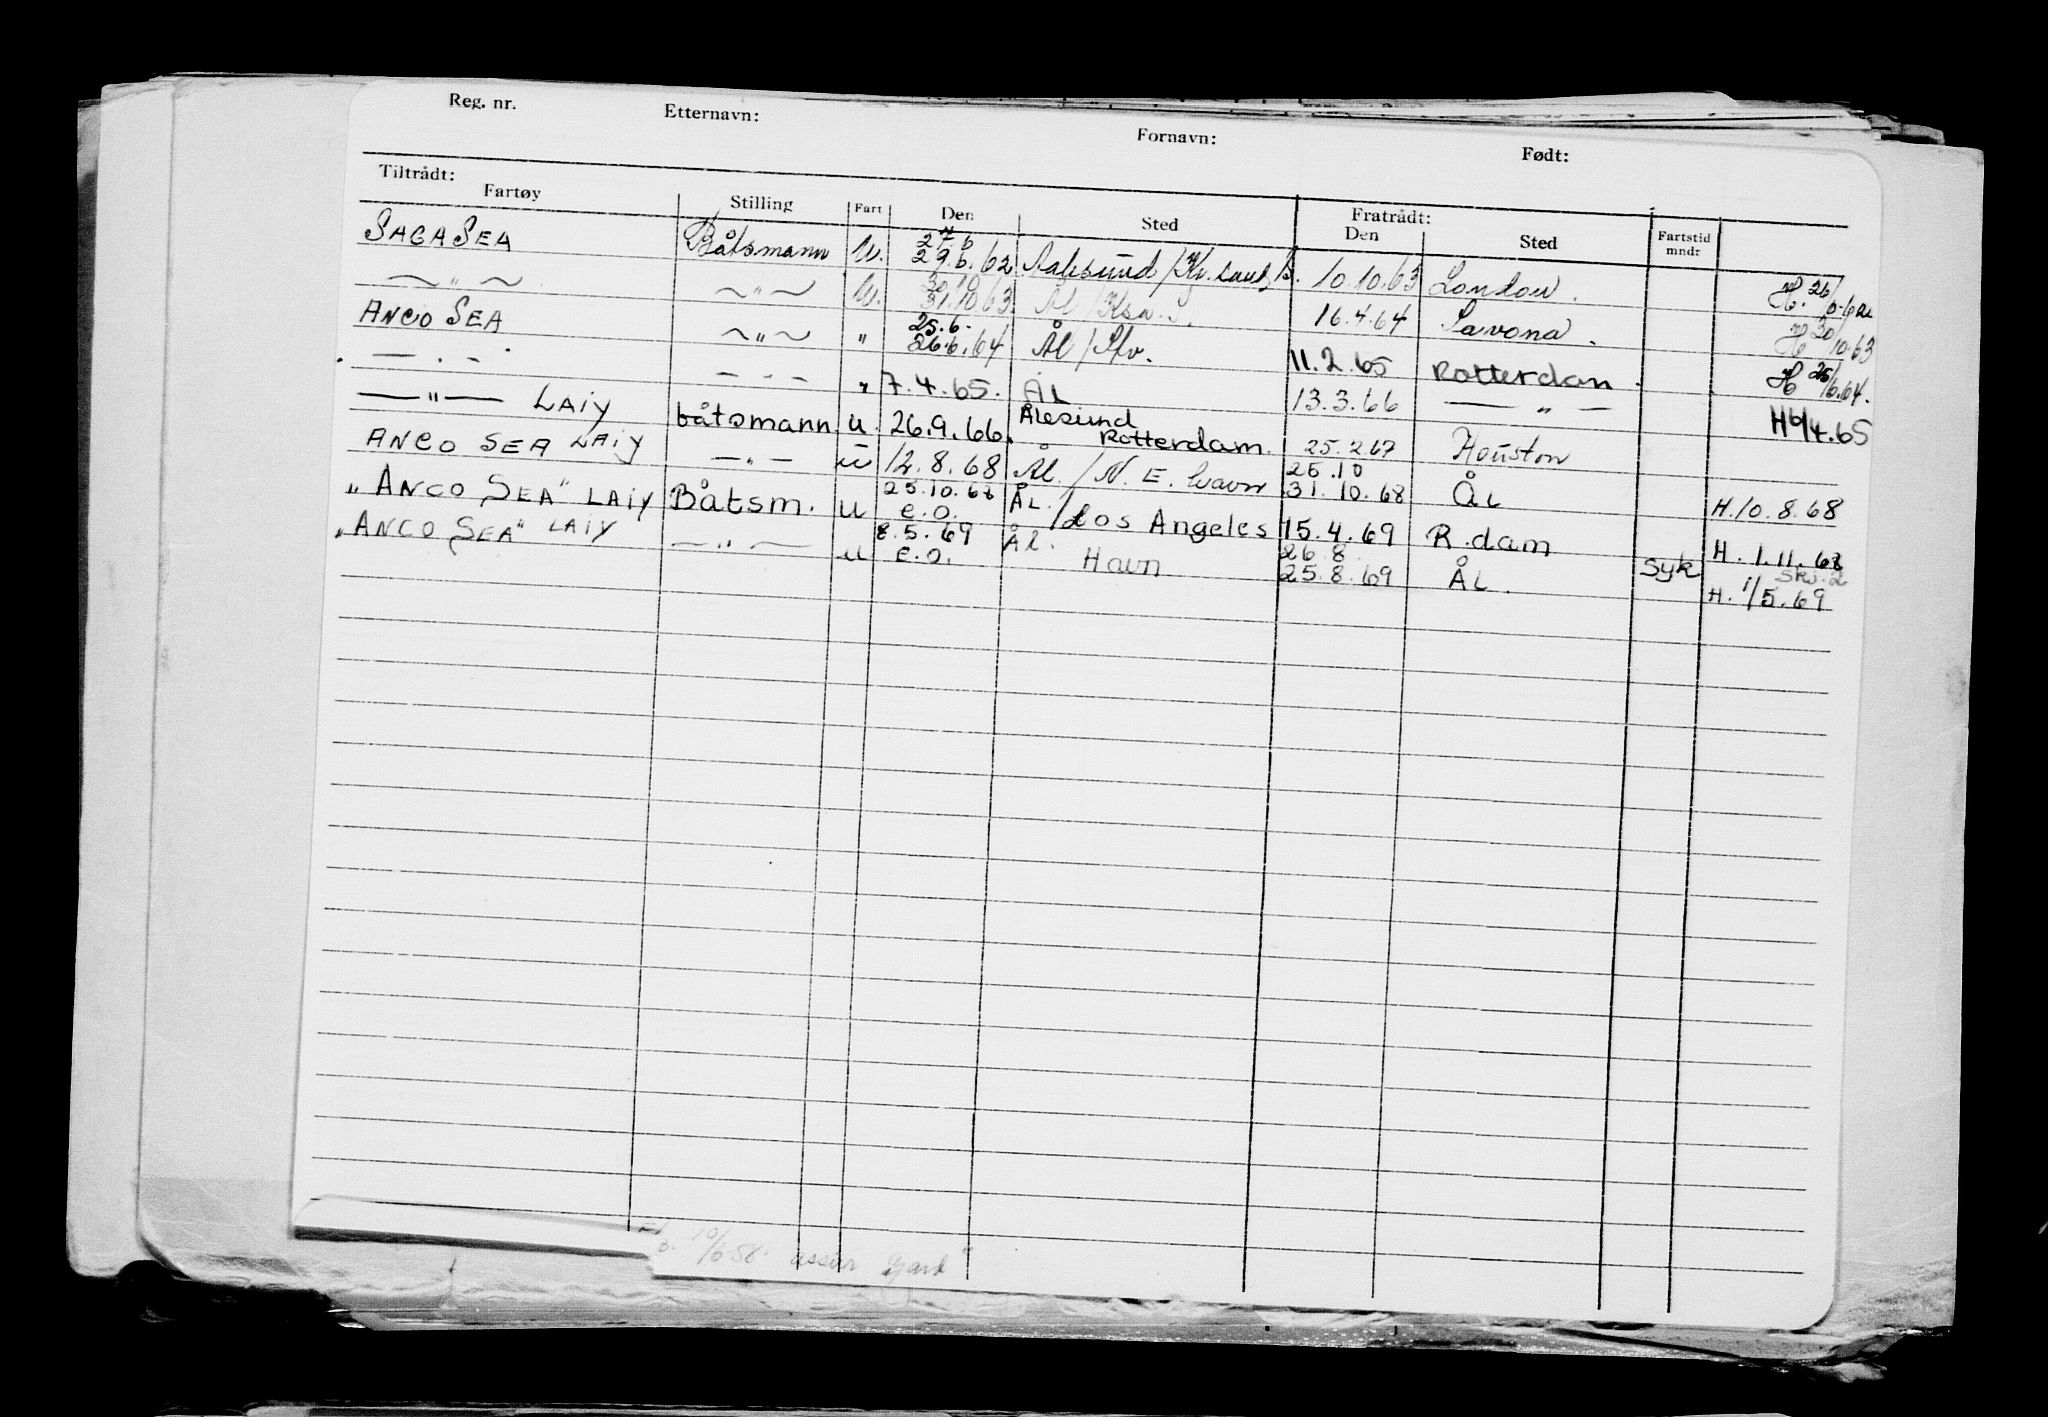 Reg. nr. Etternavn: Fornavn: Født:
Tiltrådt: Fratrådt:
Fartøy Stilling Fart Den Sted Den Sted Fartstid mndr
SAGA SEA Båtsmann U. 27.6 29.6.62 Aalesund / Kr.sand S. 10.10.63 London. H. 26/6.62
—„— —„— U. 30.10 31.10.63 Ål / Ksn. S. 16.4.64 Savona. H 30/10.63
ANCO SEA —„— „ 25.6. 26.6.64 Ål / Stv. 11.2.65 Rotterdam. H 25/6.64.
— . - . — - — „ 7.4.65. ÅL 13.3.66 — „ — H 6/4.65
—„— LAIY båtsmann u. 26.9.66. Ålesund Rotterdam. 25.2.67 Houston
ANCO SEA LAIY —„— u 12.8.68 Ål. / N. E. havn 25.10 31.10.68 ÅL H. 10.8.68
„ANCO SEA" LAIY Båtsm. u 25.10.68 E.O. ÅL. / Los Angeles 15.4.69 R.dam H. 1.11.68
„ANCO SEA" LAIY —„— u 8.5.69 E.O. Ål. Havn 26.8. 25.8.69 ÅL. Syk Skj. 2 H. 1/5.69
10/6 58